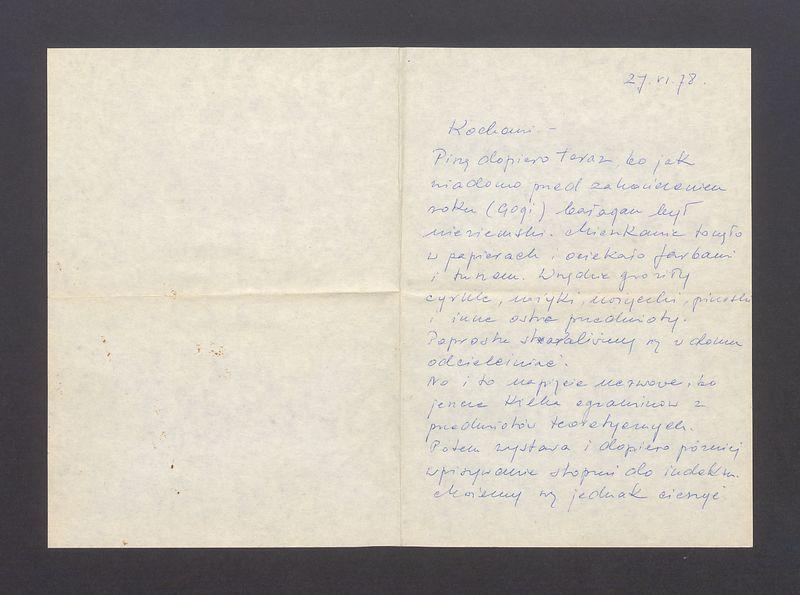 27.VI.78.
Kochani –
Piszę dopiero teraz, bo jak
wiadomo przed zakończeniem
roku (Gogi) bałagan był
nieziemski. Mieszkanie tonęło
w papierach i ociekało farbami
i tuszem. Wszędzie groziły
cyrkle, nożyki, nożyczki, pinezki
i inne ostre przedmioty.
Poprostu staraliśmy się w domu
No i to napięcie nerwowe, bo
jeszcze kilka egzaminów z
przedmiotów teoretycznych.
Potem wystawa i dopiero później
wpisywanie stopni do indeksu.
Możemy się jednak cieszyć